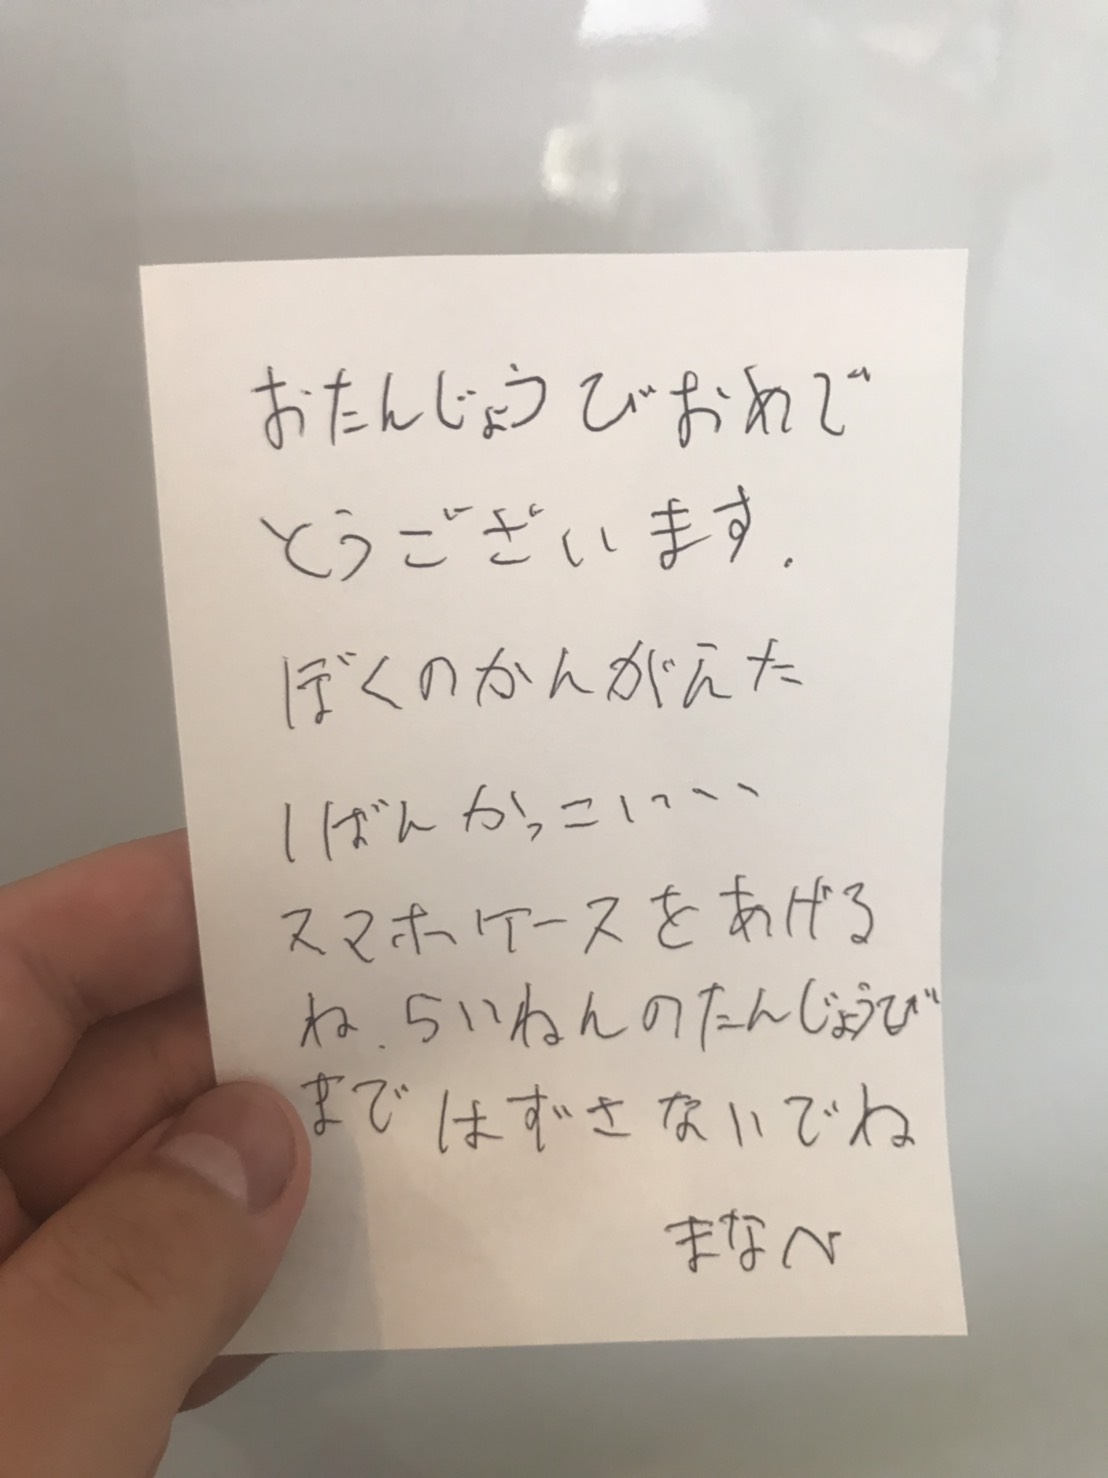 おたんじょうびおめで
とうございます.
ぼくのかんがえた
1ばんかっこいい
スマホケースをあげる
ね.らいねんのたんじょうび
まではずさないでね
まなべ